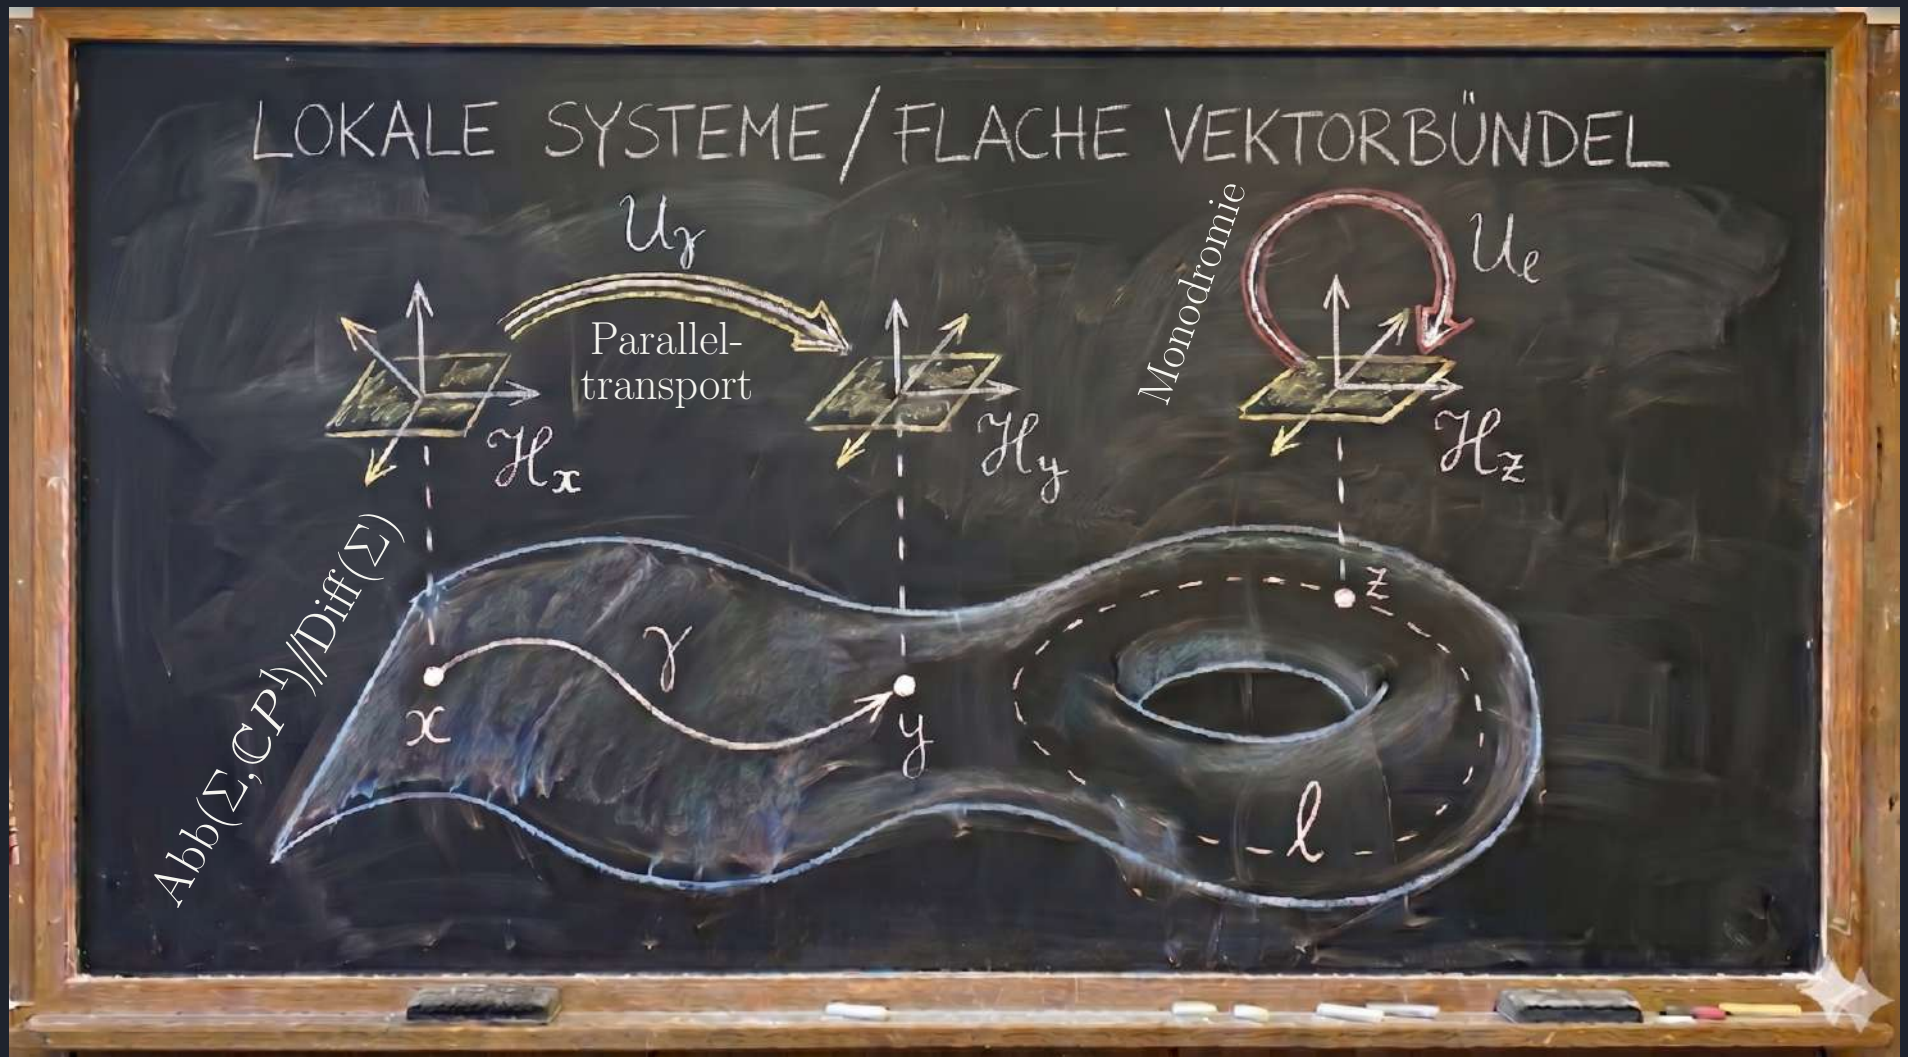 LOKALE SYSTEME / FLACHE VEKTORBÜNDEL
U_γ
Parallel-
transport
Monodromie
U_ℓ
ℋ_x
ℋ_y
ℋ_z
Abb(Σ,ℂP¹)//Diff(Σ)
x
γ
y
z
ℓ